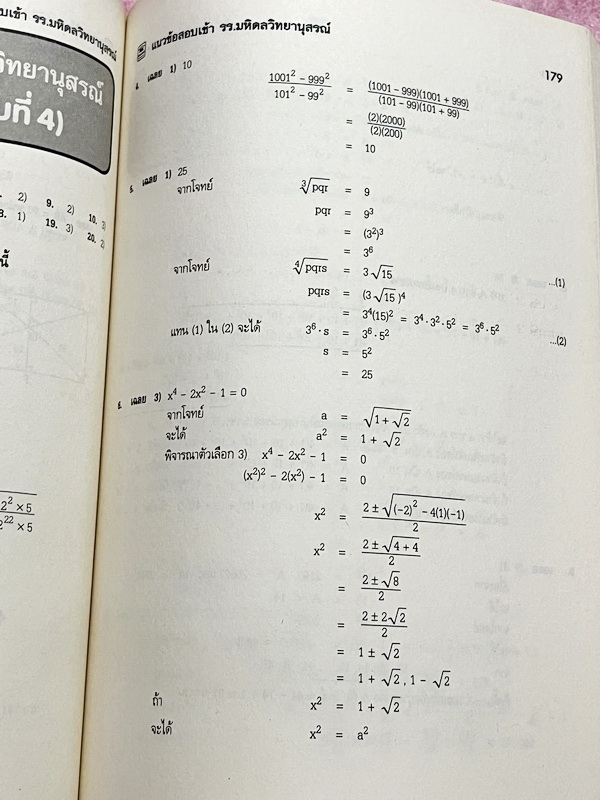 บเข้า รร.มหิดลวิทยานุสรณ์
วิทยานุสรณ์
บที่ 4)
2) 9. 2) 10. 3)
8. 1) 19. 3) 20. 2)
นี้
2² × 5
2²² × 5
แนวข้อสอบเข้า รร.มหิดลวิทยานุสรณ์
179
4. เฉลย 1) 10
(1001² – 999²)/(101² – 99²) = ((1001 – 999)(1001 + 999))/((101 – 99)(101 + 99))
= ((2)(2000))/((2)(200))
= 10
5. เฉลย 1) 25
จากโจทย์ ∛pqr = 9
pqr = 9³
= (3²)³
= 3⁶ ...(1)
จากโจทย์ ∜pqrs = 3√15
pqrs = (3√15)⁴
= 3⁴(15)² = 3⁴·3²·5² = 3⁶·5² ...(2)
แทน (1) ใน (2) จะได้ 3⁶·s = 3⁶·5²
s = 5²
= 25
6. เฉลย 3) x⁴ – 2x² – 1 = 0
จากโจทย์ a = √(1 + √2)
จะได้ a² = 1 + √2
พิจารณาตัวเลือก 3) x⁴ – 2x² – 1 = 0
(x²)² – 2(x²) – 1 = 0
x² = (2 ± √((–2)² – 4(1)(–1)))/2
x² = (2 ± √(4 + 4))/2
= (2 ± √8)/2
= (2 ± 2√2)/2
= 1 ± √2
= 1 + √2 , 1 – √2
ถ้า x² = 1 + √2
จะได้ x² = a²